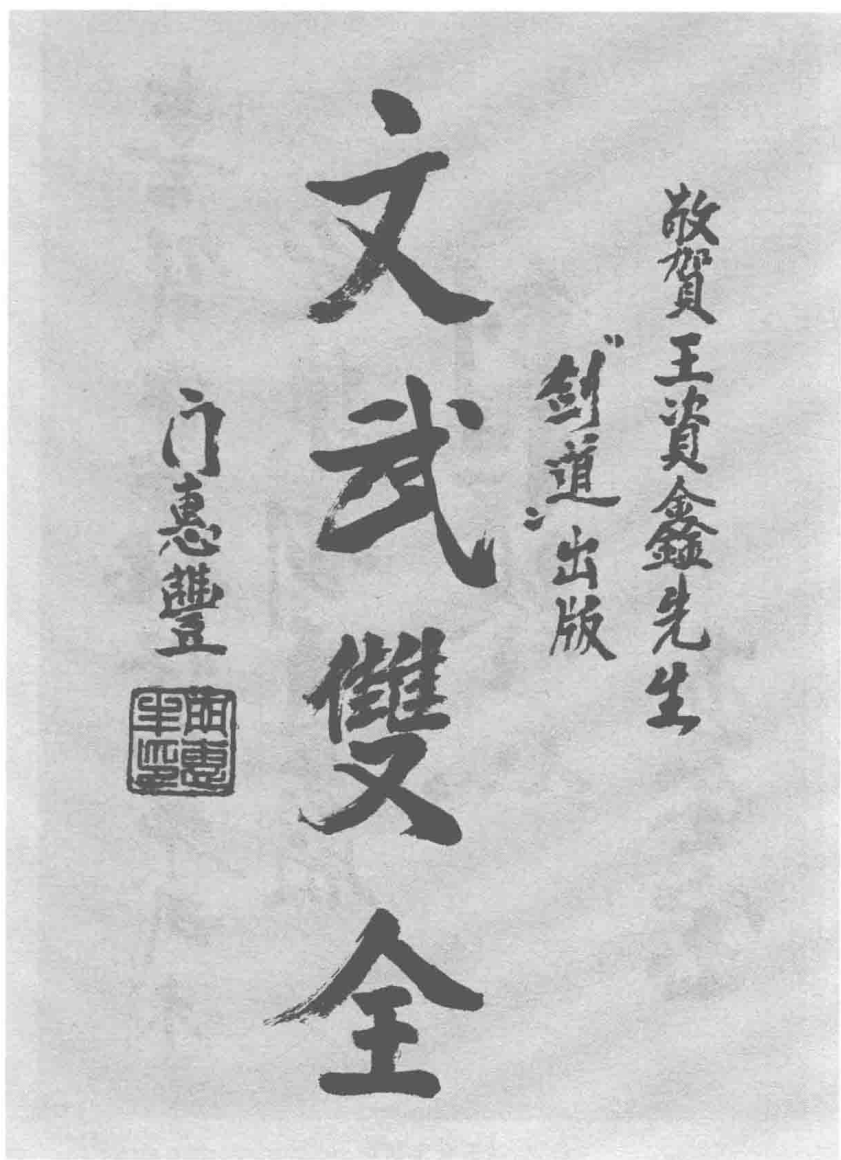 敬賀王資鑫先生
"剑道"出版
文武雙全
门惠豐